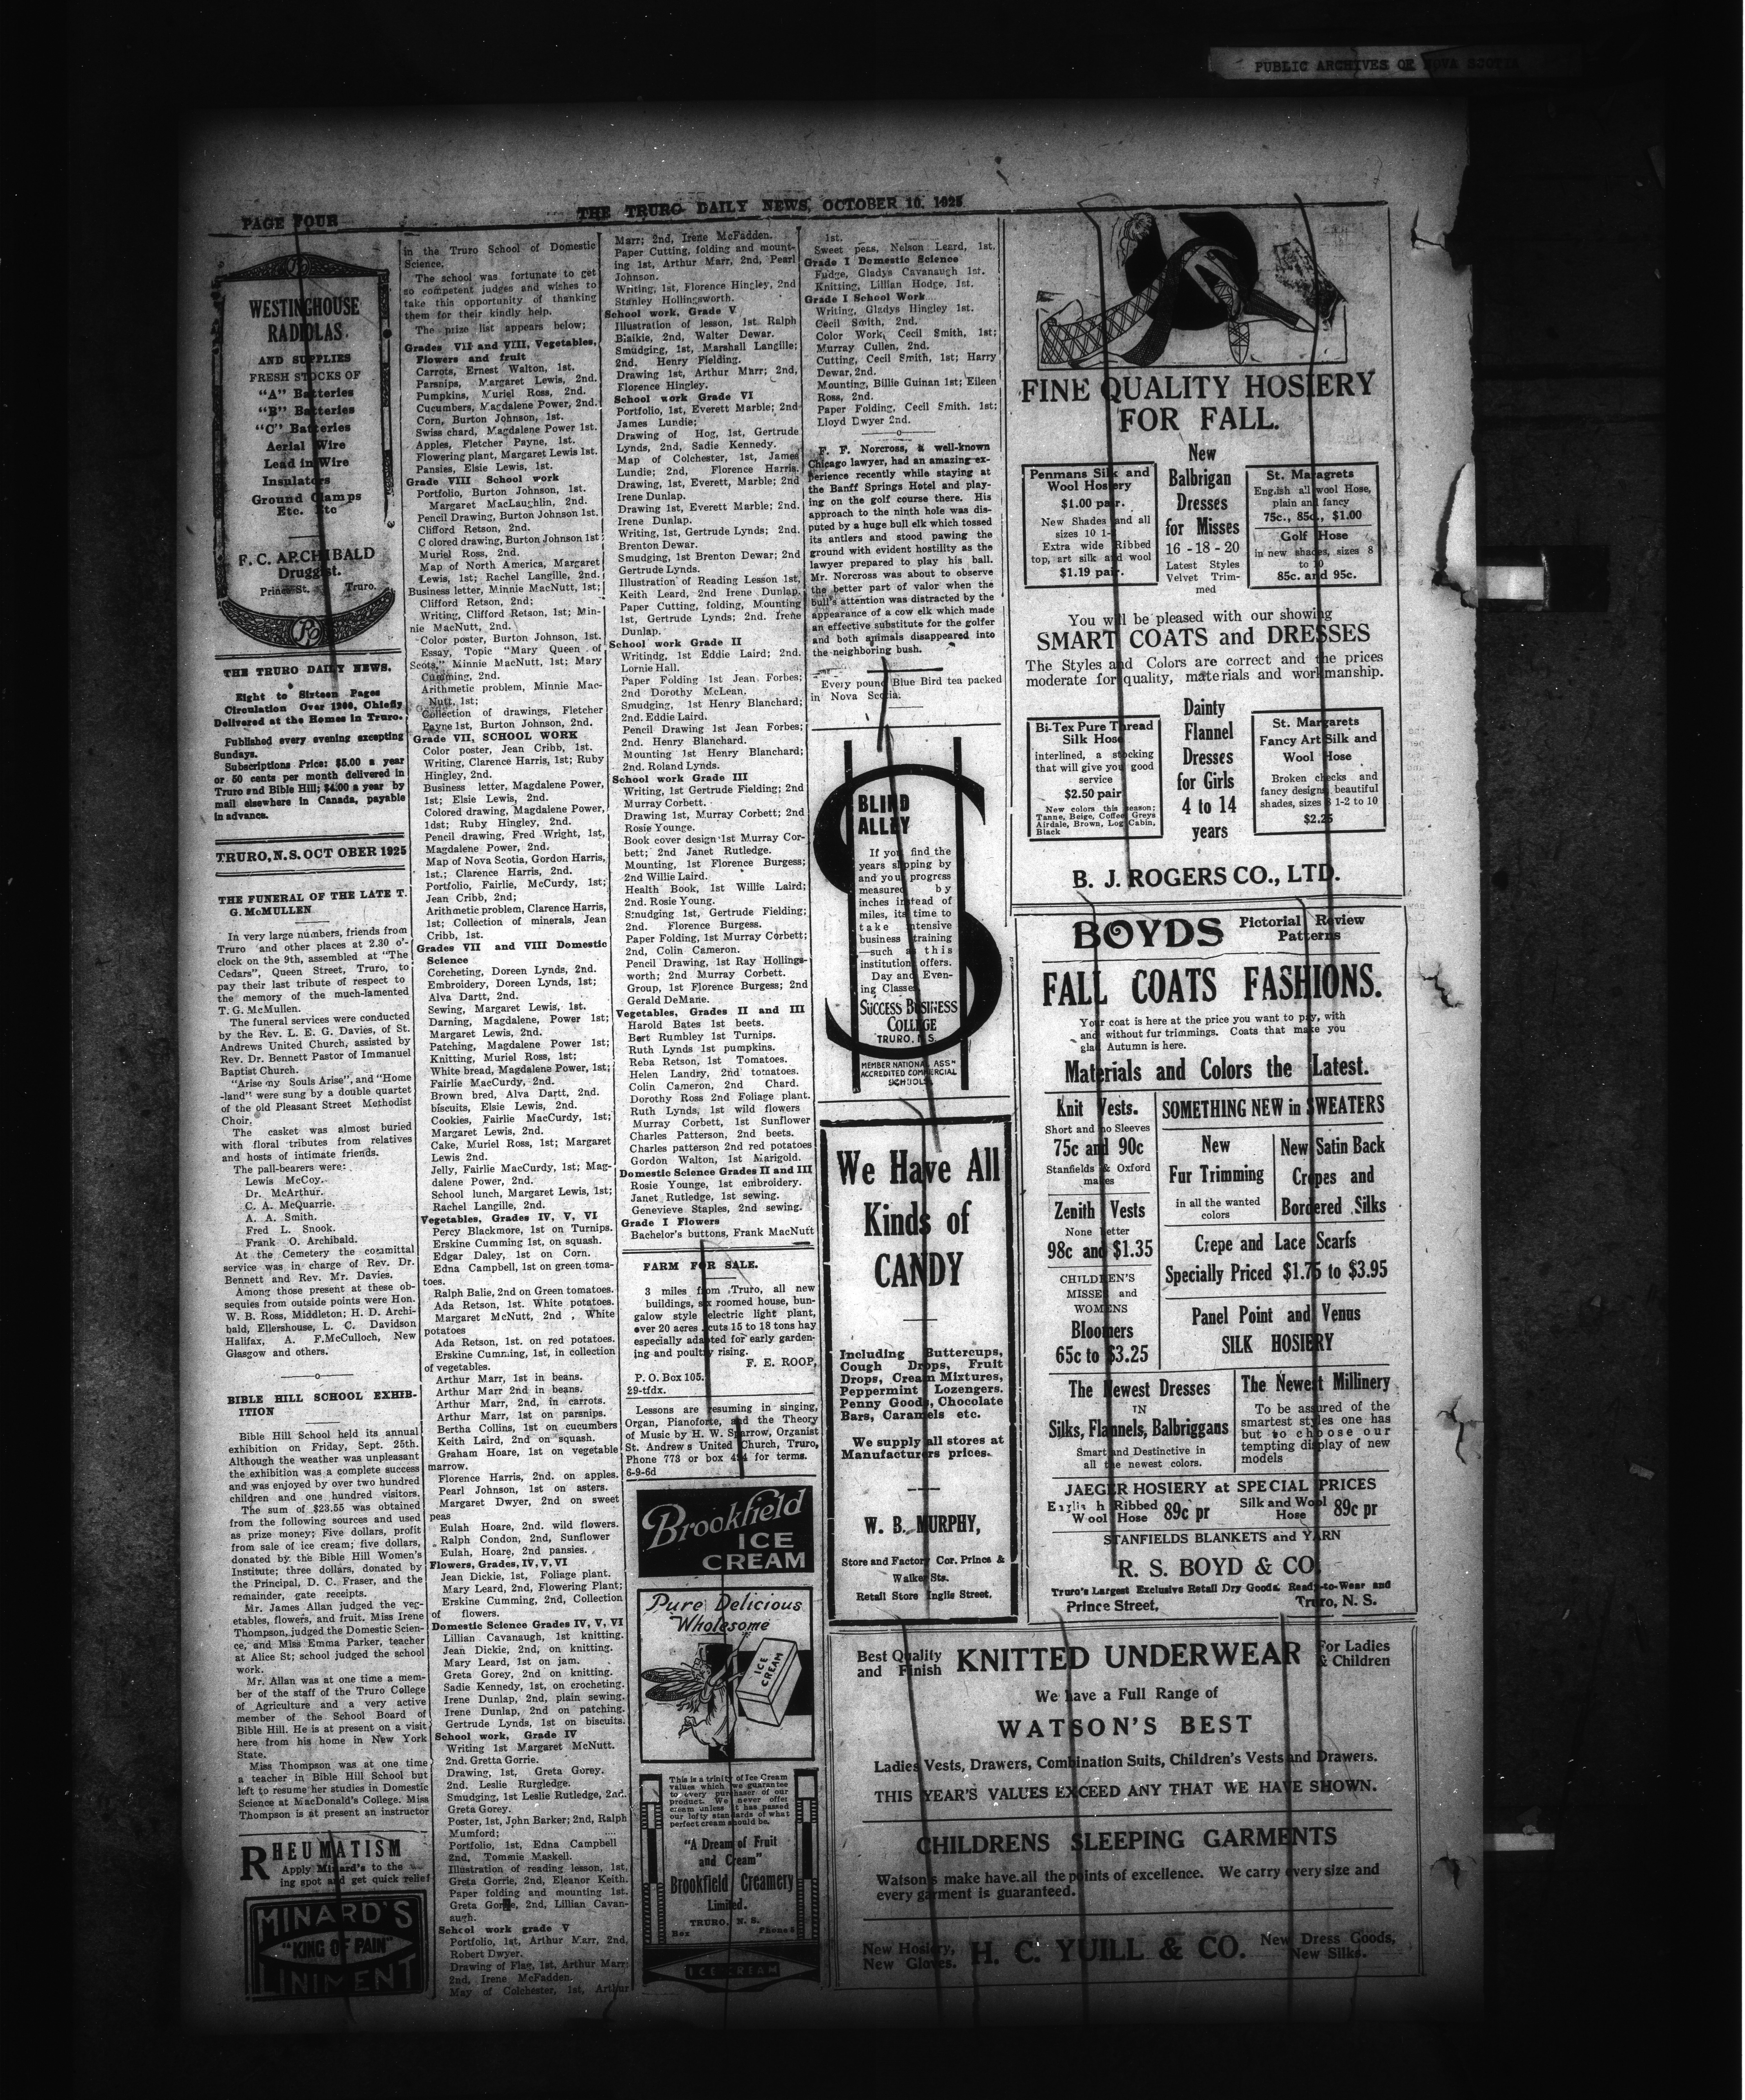 PUBLIC ARCHIVES OF NOVA SCOTIA
PAGE FOUR
THE TRURO DAILY NEWS, OCTOBER 10, 1925
WESTINGHOUSE
RADIOLAS
AND SUPPLIES
FRESH STOCKS OF
"A" Batteries
"B" Batteries
"C" Batteries
Aerial Wire
Lead in Wire
Insulators
Ground Clamps
Etc. Etc
F. C. ARCHIBALD
Druggist.
Prince St. Truro.
THE TRURO DAILY NEWS.
Eight to Sixteen Pages
Circulation Over 1200, Chiefly
Delivered at the Homes in Truro.
Published every evening excepting
Sundays.
Subscriptions Price: $5.00 a year
or 50 cents per month delivered in
Truro and Bible Hill; $4.00 a year by
mail elsewhere in Canada, payable
in advance.
TRURO, N.S. OCT OBER 1925
THE FUNERAL OF THE LATE T.
G. McMULLEN
In very large numbers, friends from
Truro and other places at 2.30 o'-
clock on the 9th, assembled at "The
Cedars", Queen Street, Truro, to
pay their last tribute of respect to
the memory of the much-lamented
T. G. McMullen.
The funeral services were conducted
by the Rev. L. E. G. Davies, of St.
Andrews United Church, assisted by
Rev. Dr. Bennett Pastor of Immanuel
Baptist Church.
"Arise my Souls Arise", and "Home
-land" were sung by a double quartet
of the old Pleasant Street Methodist
Choir,
The casket was almost buried
with floral tributes from relatives
and hosts of intimate friends.
The pall-bearers were:
Lewis McCoy.
Dr. McArthur.
C. A. McQuarrie.
A. A. Smith.
Fred L. Snook.
Frank O. Archibald.
At the Cemetery the committal
service was in charge of Rev. Dr.
Bennett and Rev. Mr. Davies.
Among those present at these ob-
sequies from outside points were Hon.
W. B. Ross, Middleton; H. D. Archi-
bald, Ellershouse, L. C. Davidson
Halifax, A. F.McCulloch, New
Glasgow and others.
BIBLE HILL SCHOOL EXHIB-
ITION
Bible Hill School held its annual
exhibition on Friday, Sept. 25th.
Although the weather was unpleasant
the exhibition was a complete success
and was enjoyed by over two hundred
children and one hundred visitors.
The sum of $23.55 was obtained
from the following sources and used
as prize money; Five dollars, profit
from sale of ice cream; five dollars,
donated by the Bible Hill Women's
Institute; three dollars, donated by
the Principal, D. C. Fraser, and the
remainder, gate receipts.
Mr. James Allan judged the veg-
etables, flowers, and fruit. Miss Irene
Thompson, judged the Domestic Scien-
ce, and Miss Emma Parker, teacher
at Alice St; school judged the school
work.
Mr. Allan was at one time a mem-
ber of the staff of the Truro College
of Agriculture and a very active
member of the School Board of
Bible Hill. He is at present on a visit
here from his home in New York
State.
Miss Thompson was at one time
a teacher in Bible Hill School but
left to resume her studies in Domestic
Science at MacDonald's College. Miss
Thompson is at present an instructor
RHEUMATISM
Apply Minard's to the
ing spot and get quick relief
MINARD'S
"KING OF PAIN"
LINIMENT
in the Truro School of Domestic
Science.
The school was fortunate to get
so competent judges and wishes to
take this opportunity of thanking
them for their kindly help.
The prize list appears below;
Grades VII and VIII, Vegetables,
Flowers and fruit
Carrots, Ernest Walton, 1st.
Parsnips, Margaret Lewis, 2nd.
Pumpkins, Muriel Ross, 2nd.
Cucumbers, Magdalene Power, 2nd.
Corn, Burton Johnson, 1st.
Swiss chard, Magdalene Power 1st.
Apples, Fletcher Payne, 1st.
Flowering plant, Margaret Lewis 1st.
Pansies, Elsie Lewis, 1st.
Grade VIII School work
Portfolio, Burton Johnson, 1st.
Margaret MacLaughlin, 2nd.
Pencil Drawing, Burton Johnson 1st.
Clifford Retson, 2nd.
C olored drawing, Burton Johnson 1st
Muriel Ross, 2nd.
Map of North America, Margaret
Lewis, 1st; Rachel Langille, 2nd.
Business letter, Minnie MacNutt, 1st;
Clifford Retson, 2nd;
Writing, Clifford Retson, 1st; Min-
nie MacNutt, 2nd.
Color poster, Burton Johnson, 1st.
Essay, Topic "Mary Queen of
Scots," Minnie MacNutt, 1st; Mary
Cumming, 2nd.
Arithmetic problem, Minnie Mac-
Nutt, 1st;
Collection of drawings, Fletcher
Payne 1st, Burton Johnson, 2nd.
Grade VII, SCHOOL WORK
Color poster, Jean Cribb, 1st.
Writing, Clarence Harris, 1st; Ruby
Hingley, 2nd.
Business letter, Magdalene Power,
1st; Elsie Lewis, 2nd.
Colored drawing, Magdalene Power,
1dst; Ruby Hingley, 2nd.
Pencil drawing, Fred Wright, 1st,
Magdalene Power, 2nd.
Map of Nova Scotia, Gordon Harris,
1st.; Clarence Harris, 2nd.
Portfolio, Fairlie, McCurdy, 1st;
Jean Cribb, 2nd;
Arithmetic problem, Clarence Harris,
1st; Collection of minerals, Jean
Cribb, 1st.
Grades VII and VIII Domestic
Science
Corcheting, Doreen Lynds, 2nd.
Embroidery, Doreen Lynds, 1st;
Alva Dartt, 2nd.
Sewing, Margaret Lewis, 1st.
Darning, Magdalene, Power 1st;
Margaret Lewis, 2nd.
Patching, Magdalene Power 1st;
Knitting, Muriel Ross, 1st;
White bread, Magdalene Power, 1st;
Fairlie MacCurdy, 2nd.
Brown bred, Alva Dartt, 2nd.
biscuits, Elsie Lewis, 2nd.
Cookies, Fairlie MacCurdy, 1st;
Margaret Lewis, 2nd.
Cake, Muriel Ross, 1st; Margaret
Lewis 2nd.
Jelly, Fairlie MacCurdy, 1st; Mag-
dalene Power, 2nd.
School lunch, Margaret Lewis, 1st;
Rachel Langille, 2nd.
Vegetables, Grades IV, V, VI
Percy Blackmore, 1st on Turnips.
Erskine Cumming 1st, on squash.
Edgar Daley, 1st on Corn.
Edna Campbell, 1st on green toma-
toes.
Ralph Balie, 2nd on Green tomatoes.
Ada Retson, 1st. White potatoes.
Margaret McNutt, 2nd , White
potatoes
Ada Retson, 1st. on red potatoes.
Erskine Cumming, 1st, in collection
of vegetables.
Arthur Marr, 1st in beans.
Arthur Marr 2nd in beans.
Arthur Marr, 2nd, in carrots.
Arthur Marr, 1st on parsnips.
Bertha Collins, 1st on cucumbers
Keith Laird, 2nd on squash.
Graham Hoare, 1st on vegetable
marrow.
Florence Harris, 2nd. on apples.
Pearl Johnson, 1st on asters.
Margaret Dwyer, 2nd on sweet
peas
Eulah Hoare, 2nd. wild flowers.
Ralph Condon, 2nd, Sunflower
Eulah, Hoare, 2nd pansies.
Flowers, Grades, IV, V, VI
Jean Dickie, 1st, Foliage plant.
Mary Leard, 2nd, Flowering Plant;
Erskine Cumming, 2nd, Collection
of flowers.
Domestic Science Grades IV, V, VI
Lillian Cavanaugh, 1st knitting.
Jean Dickie, 2nd, on knitting.
Mary Leard, 1st on jam.
Greta Gorey, 2nd on knitting.
Sadie Kennedy, 1st, on crocheting.
Irene Dunlap, 2nd, plain sewing.
Irene Dunlap, 2nd on patching.
Gertrude Lynds, 1st on biscuits.
School work, Grade IV
Writing 1st Margaret McNutt.
2nd. Gretta Gorrie.
Drawing, 1st, Greta Gorey.
2nd. Leslie Rurgledge.
Smudging, 1st Leslie Rutledge, 2nd.
Greta Gorey.
Poster, 1st, John Barker; 2nd, Ralph
Mumford;
Portfolio, 1st, Edna Campbell
2nd. Tommie Maskell.
Illustration of reading lesson, 1st,
Greta Gorrie, 2nd, Eleanor Keith.
Paper folding and mounting 1st.
Greta Gorrie, 2nd, Lillian Cavan-
augh.
School work grade V
Portfolio, 1st, Arthur Marr, 2nd,
Robert Dwyer.
Drawing of Flag, 1st, Arthur Marr;
2nd, Irene McFadden.
May of Colchester, 1st, Arthur
Marr; 2nd, Irene McFadden.
Paper Cutting, folding and mount-
ing 1st, Arthur Marr, 2nd, Pearl
Johnson.
Writing, 1st, Florence Hingley, 2nd
Stanley Hollingsworth.
School work, Grade V
Illustration of lesson, 1st. Ralph
Blaikie, 2nd, Walter Dewar.
Smudging, 1st, Marshall Langille;
2nd. Henry Fielding.
Drawing 1st, Arthur Marr; 2nd,
Florence Hingley.
School work Grade VI
Portfolio, 1st, Everett Marble; 2nd
James Lundie;
Drawing of Hog, 1st, Gertrude
Lynds, 2nd, Sadie Kennedy.
Map of Colchester, 1st, James
Lundie; 2nd, Florence Harris.
Drawing, 1st, Everett, Marble; 2nd
Irene Dunlap.
Drawing 1st, Everett Marble; 2nd.
Irene Dunlap.
Writing, 1st, Gertrude Lynds; 2nd.
Brenton Dewar.
Smudging, 1st Brenton Dewar; 2nd
Gertrude Lynds.
Illustration of Reading Lesson 1st,
Keith Leard, 2nd Irene Dunlap.
Paper Cutting, folding, Mounting
1st, Gertrude Lynds; 2nd. Irene
Dunlap.
School work Grade II
Writindg, 1st Eddie Laird; 2nd.
Lornie Hall.
Paper Folding 1st Jean Forbes;
2nd Dorothy McLean.
Smudging, 1st Henry Blanchard;
2nd. Eddie Laird.
Pencil Drawing 1st Jean Forbes;
2nd. Henry Blanchard.
Mounting 1st Henry Blanchard;
2nd. Roland Lynds.
School work Grade III
Writing, 1st Gertrude Fielding; 2nd
Murray Corbett.
Drawing 1st, Murray Corbett; 2nd
Rosie Younge.
Book cover design 1st Murray Cor-
bett; 2nd Janet Rutledge.
Mounting, 1st Florence Burgess;
2nd Willie Laird.
Health Book, 1st Willie Laird;
2nd. Rosie Young.
Smudging 1st, Gertrude Fielding;
2nd. Florence Burgess.
Paper Folding, 1st Murray Corbett;
2nd, Colin Cameron.
Pencil Drawing, 1st Ray Hollings-
worth; 2nd Murray Corbett.
Group, 1st Florence Burgess; 2nd
Gerald DeMane.
Vegetables, Grades II and III
Harold Bates 1st beets.
Bert Rumbley 1st Turnips.
Ruth Lynds 1st pumpkins.
Reba Retson, 1st Tomatoes.
Helen Landry, 2nd tomatoes.
Colin Cameron, 2nd Chard.
Dorothy Ross 2nd Foliage plant.
Ruth Lynds, 1st wild flowers
Murray Corbett, 1st Sunflower
Charles Patterson, 2nd beets.
Charles patterson 2nd red potatoes
Gordon Walton, 1st Marigold.
Domestic Science Grades II and III
Rosie Younge, 1st embroidery.
Janet Rutledge, 1st sewing.
Genevieve Staples, 2nd sewing.
Grade I Flowers
Bachelor's buttons, Frank MacNutt
FARM FOR SALE.
3 miles from Truro, all new
buildings, six roomed house, bun-
galow style electric light plant,
over 20 acres cuts 15 to 18 tons hay
especially adapted for early garden-
ing and poultry rising.
F. E. ROOP,
P. O. Box 105.
29-tfdx.
Lessons are resuming in singing,
Organ, Pianoforte, and the Theory
of Music by H. W. Sparrow, Organist
St. Andrew's United Church, Truro,
Phone 773 or box 454 for terms.
6-9-6d
Brookfield
ICE
CREAM
Pure Delicious
Wholesome
ICE
CREAM
This is a trinity of Ice Cream
values which we guarantee
to every purchaser of our
product. We never offer
cream unless it has passed
our lofty standards of what
perfect cream should be.
"A Dream of Fruit
and Cream"
Brookfield Creamery
Limited.
TRURO, N. S.
Box Phone
ICE CREAM
1st.
Sweet peas, Nelson Leard, 1st.
Grade I Domestic Science
Fudge, Gladys Cavanaugh 1st.
Knitting, Lillian Hodge, 1st.
Grade I School Work
Writing, Gladys Hingley 1st.
Cecil Smith, 2nd.
Color Work, Cecil Smith, 1st;
Murray Cullen, 2nd.
Cutting, Cecil Smith, 1st; Harry
Dewar, 2nd.
Mounting, Billie Guinan 1st; Eileen
Ross, 2nd.
Paper Folding, Cecil Smith. 1st;
Lloyd Dwyer 2nd.
F. F. Norcross, a well-known
Chicago lawyer, had an amazing ex-
perience recently while staying at
the Banff Springs Hotel and play-
ing on the golf course there. His
approach to the ninth hole was dis-
puted by a huge bull elk which tossed
its antlers and stood pawing the
ground with evident hostility as the
lawyer prepared to play his ball.
Mr. Norcross was about to observe
the better part of valor when the
bull's attention was distracted by the
appearance of a cow elk which made
an effective substitute for the golfer
and both animals disappeared into
the neighboring bush.
Every pound Blue Bird tea packed
in Nova Scotia.
BLIND
ALLEY
If you find the
years slipping by
and your progress
measured by
inches instead of
miles, its time to
take intensive
business training
—such as this
institution offers.
Day and Even-
ing Classes
SUCCESS BUSINESS
COLLEGE
TRURO, N.S.
MEMBER NATIONAL ASS'N
ACCREDITED COMMERCIAL
SCHOOLS
We Have All
Kinds of
CANDY
Including Buttercups,
Cough Drops, Fruit
Drops, Cream Mixtures,
Peppermint Lozengers.
Penny Goods, Chocolate
Bars, Caramels etc.
We supply all stores at
Manufacturers prices.
W. B. MURPHY,
Store and Factory Cor. Prince &
Walker Sts.
Retail Store Inglis Street.
FINE QUALITY HOSIERY
FOR FALL.
Penmans Silk and
Wool Hosiery
$1.00 pair.
New Shades and all
sizes 10 1-
Extra wide Ribbed
top, art silk and wool
$1.19 pair.
New
Balbrigan
Dresses
for Misses
16 - 18 - 20
Latest Styles
Velvet Trim-
med
St. Maragrets
English all wool Hose,
plain and fancy
75c., 85c., $1.00
Golf Hose
in new shades, sizes 8
to 10
85c. and 95c.
You will be pleased with our showing
SMART COATS and DRESSES
The Styles and Colors are correct and the prices
moderate for quality, materials and workmanship.
Bi-Tex Pure Thread
Silk Hose
interlined, a stocking
that will give you good
service
$2.50 pair
New colors this season;
Tanne, Beige, Coffee, Greys
Airdale, Brown, Log Cabin,
Black
Dainty
Flannel
Dresses
for Girls
4 to 14
years
St. Margarets
Fancy Art Silk and
Wool Hose
Broken checks and
fancy designs, beautiful
shades, sizes 8 1-2 to 10
$2.25
B. J. ROGERS CO., LTD.
BOYDS Pictorial Review
Patterns
FALL COATS FASHIONS.
Your coat is here at the price you want to pay, with
and without fur trimmings. Coats that make you
glad Autumn is here.
Materials and Colors the Latest.
Knit Vests.
Short and no Sleeves
75c and 90c
Stanfields & Oxford
makes
Zenith Vests
None better
98c and $1.35
CHILDREN'S
MISSES and
WOMENS
Bloomers
65c to $3.25
SOMETHING NEW in SWEATERS
New
Fur Trimming
in all the wanted
colors
New Satin Back
Crepes and
Bordered Silks
Crepe and Lace Scarfs
Specially Priced $1.75 to $3.95
Panel Point and Venus
SILK HOSIERY
The Newest Dresses
IN
Silks, Flannels, Balbriggans
Smart and Destinctive in
all the newest colors.
The Newest Millinery
To be assured of the
smartest styles one has
but to choose our
tempting display of new
models
JAEGER HOSIERY at SPECIAL PRICES
English Ribbed
Wool Hose 89c pr
Silk and Wool
Hose 89c pr
STANFIELDS BLANKETS and YARN
R. S. BOYD & CO.
Truro's Largest Exclusive Retail Dry Goods, Ready-to-Wear and
Prince Street, Truro, N. S.
Best Quality
and Finish
KNITTED UNDERWEAR
For Ladies
& Children
We have a Full Range of
WATSON'S BEST
Ladies Vests, Drawers, Combination Suits, Children's Vests and Drawers.
THIS YEAR'S VALUES EXCEED ANY THAT WE HAVE SHOWN.
CHILDRENS SLEEPING GARMENTS
Watsons make have all the points of excellence. We carry every size and
every garment is guaranteed.
New Hosiery,
New Gloves.
H. C. YUILL & CO.
New Dress Goods,
New Silks.